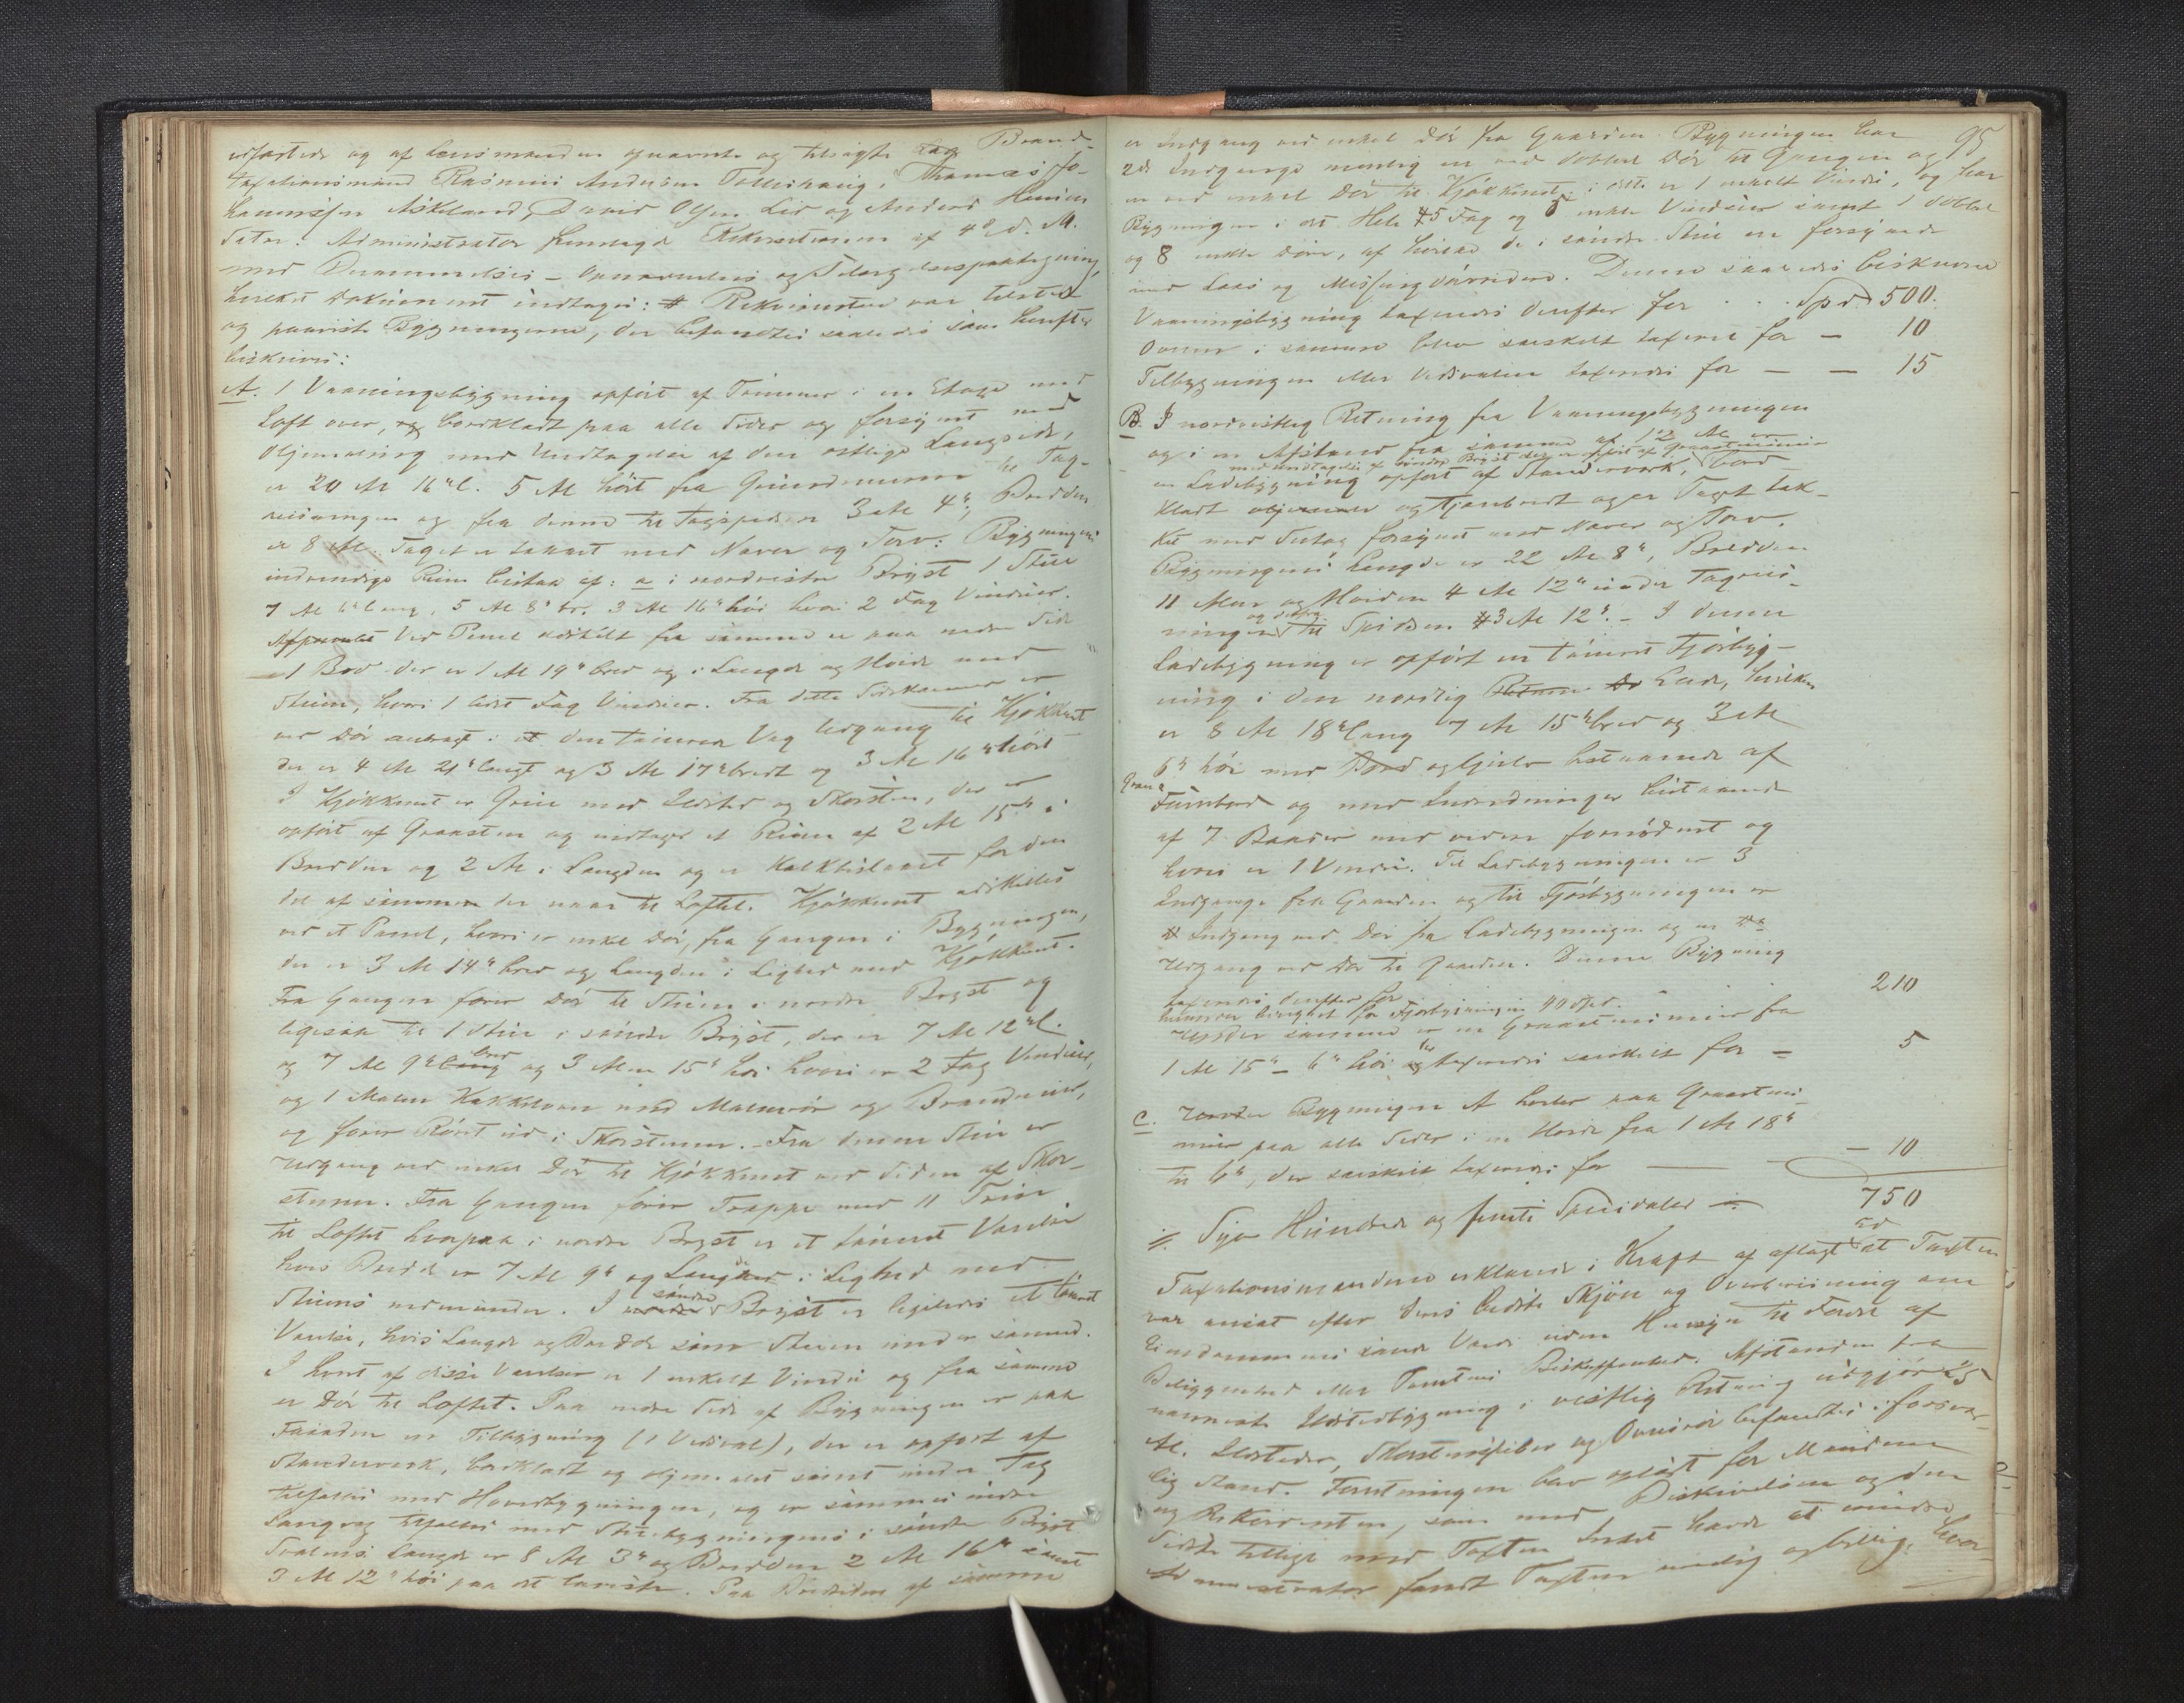 udfærdede og af Lensmanden opnævnte og tilsagte Brand-
taxationsmænd Rasmus Andersen Tolleshaug, Thomas Jo-
hannesen Askeland, David Olsen Lid og Anders Hansen
Administrator fremlagde Rekvisitionen af 4de d. M.
med Berammelses- Opnævnelses og Tilsigelsespaategning,
hvilket Dokument indtages: # Rekvirenten var tilstede
og paaviste Bygningerne, der befandtes saaledes som herefter
beskrives:
A. 1 Vaaningsbygning opført af Tømmer i en Etage med
Loft over, og bordklædt paa alle Sider og forsynet med
Oljemaling med Undtagelse af den østlige Langside,
er 20 Al 16" l. 5 Al høit fra Grundmuren til Tag-
reisningen og fra denne til Tagspidsen 3 Al 4", Bredden
er 8 Al. Taget er tækket med Næver og Torv: Bygningens
indvendige Rum bestaa af: a i nordvestre Bryst 1 Stue
7 Al 6" lang, 5 Al 8" br. 3 Al 16" høi hvori 2 Fag Vinduer.
Ved Panel adskilt fra samme er paa nedre Side
1 Bod der er 1 Al 19" bred og i Længde og Høide med
Stuen, hvori 1 lidet Fag Vinduer. Fra dette Sidekammer er
ved Dør i den tømrede Væg Udgang til Kjøkkenet
der er 4 Al 21" langt og 3 Al 17" bredt og 3 Al 16" høit
I Kjøkkenet er Grue med Ildsted og Skorsten, der er
opført af Graasten og indtager et Rum af 2 Al 15" i
Bredden og 2 Al i Længden og er Kalkbeslaaet for den
del af samme der naar til Loftet. Kjøkkenet adskilles
ved et Panel, hvori er enkel Dør, fra Gangen i Bygningen,
der er 3 Al 14" bred og Længden i Lighed med Kjøkkenet.
Fra Gangen fører Dør til Stuen i nordre Bryst og
ligesaa til 1 Stue i søndre Bryst, der er 7 Al 12" l.
og 7 Al 9" bred og 3 Alen 15" høi hvori er 2 Fag Vinduer,
og 1 Malm Kakkelovn med Malmrør og Brandmur,
og fører Røret ud i Skorstenen. – Fra denne Stue er
Udgang ved enkel Dør til Kjøkkenet ved Siden af Skor-
stenen. Fra Gangen fører Trappe med 11 Trin
til Loftet hvorpaa i nordre Bryst er et tømret Værelse
hvis Bredde er 7 Al 9" og Længde i Lighed med
Stuens nedenunder. I søndre Bryst er ligeledes et tømret
Værelse, hvis Længde og Bredde som Stuen under samme.
I hvert af disse Værelser er 1 enkelt Vindu og fra samme
er Dør til Loftet. Paa nedre Side af Bygningen er paa
Facaden en Tilbygning (1 Vedsval), der er opført af
Standerverk, bordklædt og oljemalet samt under Tag
tilfælles med Hovedbygningen, og er sammes indre
Langvæg tilfælles med Stuebygningens i søndre Bryst
Svalens Længde er 8 Al 3" og Bredden 2 Al 16" samt
3 Al 12" høi paa det laveste. Paa Bredsiden af samme
95
er Indgang ved enkel Dør fra Gaarden. Bygningen har
2de Indgange nemlig en ved dobbel Dør til Gangen og
en ved enkel Dør til Kjøkkenet; i dette er 1 enkelt Vindu, og har
Bygningen i det Hele 5 Fag og 5 enkle Vinduer samt 1 dobbel
og 8 enkle Døre, af hvilke de i søndre Stue ere forsynede
med Laas og Messingdørvridere. Denne saaledes beskrevne
Vaaningsbygning taxeredes derefter for . . . Spd. 500.
Ovnen i samme blev særskilt taxeret for – 10
Tilbygningen eller Vedsvalen taxeredes for – – 15
B. I nordvestlig Retning fra Vaaningsbygningen
og i en Afstand fra samme af 12 Al er
med Undtagelse af søndre Bryst der er opført af Graastensmuur
en Ladebygning opført af Standerverk, bord-
klædt og tjærebredt og er Taget tæk-
ket med Sutag forsynet med Næver og Torv.
Bygningens Længde er 22 Al 8", Bredden
11 Alen og Høiden 4 Al 12" under Tagreis-
ningen og derfra til Spidsen 3 Al 12". – I denne
Ladebygning er opført en tømret Fjøsbyg-
ning i den nordlig Ende, hvilken
er 8 Al 18" lang 7 Al 15" bred og 3 Al
6" høi med og Gjerder bestaaende af
Furubord og med Indredninger bestaaende
af 7 Baaser med videre fornødent og
hvori er 1 Vindu. Til Ladebygningen er 3
Indgange fra Gaarden og til Fjøsbygningen er
Indgang ved Dør fra Ladebygningen og en do
Udgang ved Dør til Gaarden. Denne Bygning
taxeredes derefter for 210
hvoraf beregnet for Fjøsbygningen 40 Spd.
Under samme er en Graastensmuur fra
1 Al 15" – 6" høi der taxeredes særskilt for – 5
C. Under Bygningen A hviler paa Graastens-
muur paa alle Sider i en Høide fra 1 Al 18"
til 6", der særskilt taxeredes for – 10
Syv Hundrede og femti Speciedaler 750
Taxationsmændene erklærede i Kraft af aflagt Ed at Taxten
var ansat efter deres bedste Skjøn og Overbevisning om
Eiendommens sande Værdi uden Hensyn til Fordel af
Beliggenhed eller Tomtens Beskaffenhed. Afstanden fra
nærmeste Udstedbygning i vestlig Retning udgjør 25
Al. Ildsteder, Skorstenspiber og Ovnsrør befandtes i forsvar-
lig Stand. Forretningen blev oplæst for Mændene
og Rekvirenten, som mod Beskrivelsen og den
sidste tillige mod Taxten Intet havde at erindre
Administrator fandt Taxten rimelig og billig, hvor-